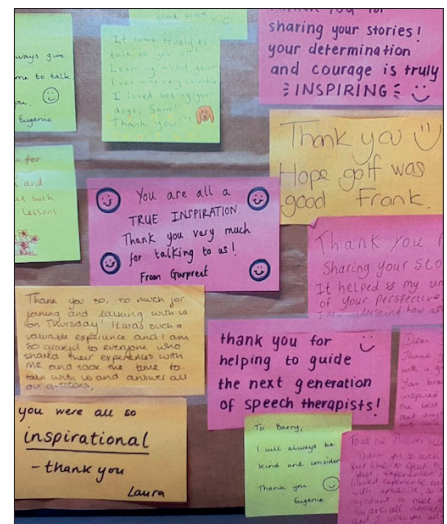 always give
me to talk
Eugenie
It was lovely to
talk to you
Learning about your
lives was very valuable
I loved seeing your
dogs, Sam!
Thank you!!
Thank you for
sharing your stories!
your determination
and courage is truly
INSPIRING
Thank you
Hope golf was
good Frank.
for
and
as such
Lessons
You are all a
TRUE INSPIRATION
Thank you very much
for talking to us!
From Gurpreet
Thank you
Sharing your Sto
It helped is my un
of your perspective
Thank you so, so much for
joining and talking with us
on Thursday! It was such a
valuable experience and I am
so grateful to everyone who
shared their experiences with
me and took the time to
talk with us and answer all
our questions.
thank you for
helping to guide
the next generation
of speech therapists!
Dear
Thank
with a
inspired
the best
you were all so
inspirational
- thank you
Laura
To Barry,
I will always be
kind and consider
Thank you.
Eugenie
Thank you so